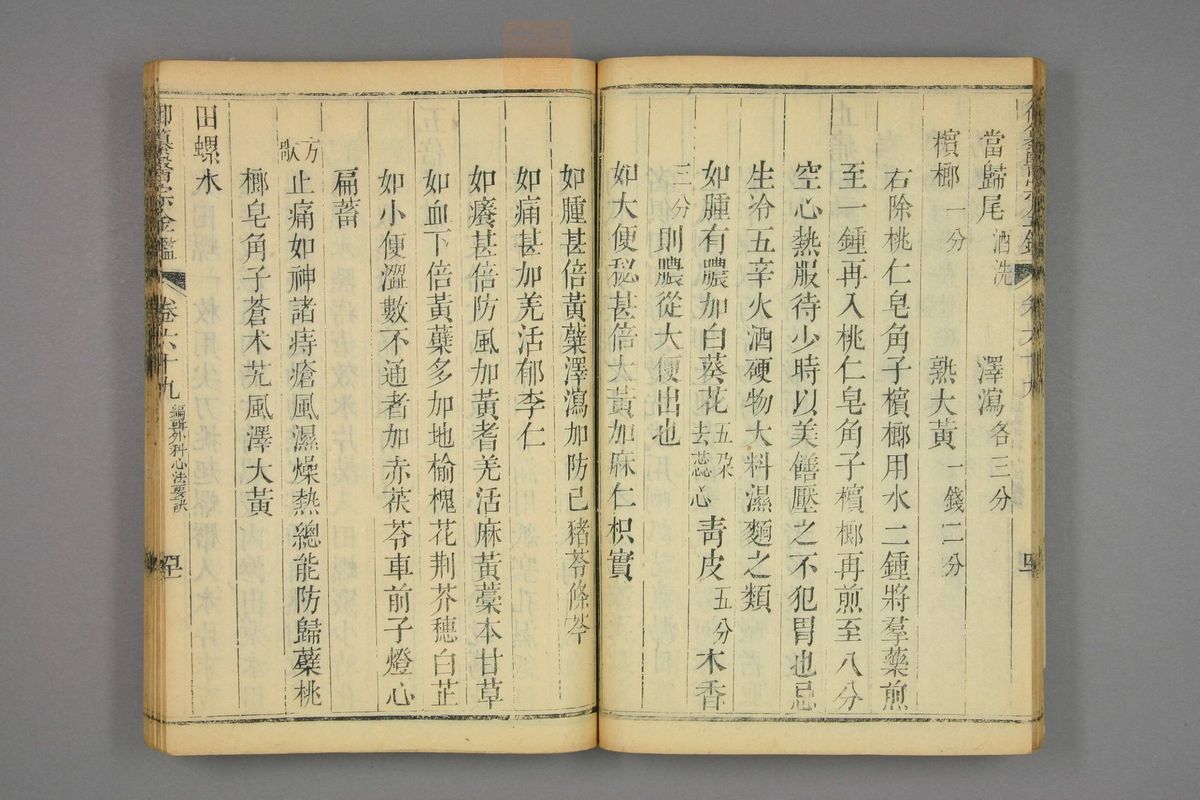 當歸尾酒洗 澤瀉各三分
檳榔一分 熟大黃一錢二分
右除桃仁皂角子檳榔用水二鍾將羣藥煎
至一鍾再入桃仁皂角子檳榔再煎至八分
空心熱服待少時以美饍壓之不犯胃也忌
生冷五辛火酒硬物大料濕麵之類
如腫有膿加白葵花五朶去蕊心靑皮五分木香
三分則膿從大便出也
如大便秘甚倍大黃加麻仁枳實
如腫甚倍黃蘗澤瀉加防己豬苓條芩
如痛甚加羌活郁李仁
如癢甚倍防風加黃耆羌活麻黃藁本甘草
如血下倍黃蘗多加地榆槐花荆芥穗白芷
如小便澀數不通者加赤茯苓車前子燈心
扁蓄
方歌 止痛如神諸痔瘡風濕燥熱總能防歸蘗桃
榔皂角子蒼术艽風澤大黃
田螺水
御纂醫宗金鑑 卷六十九 編輯外科心法要訣